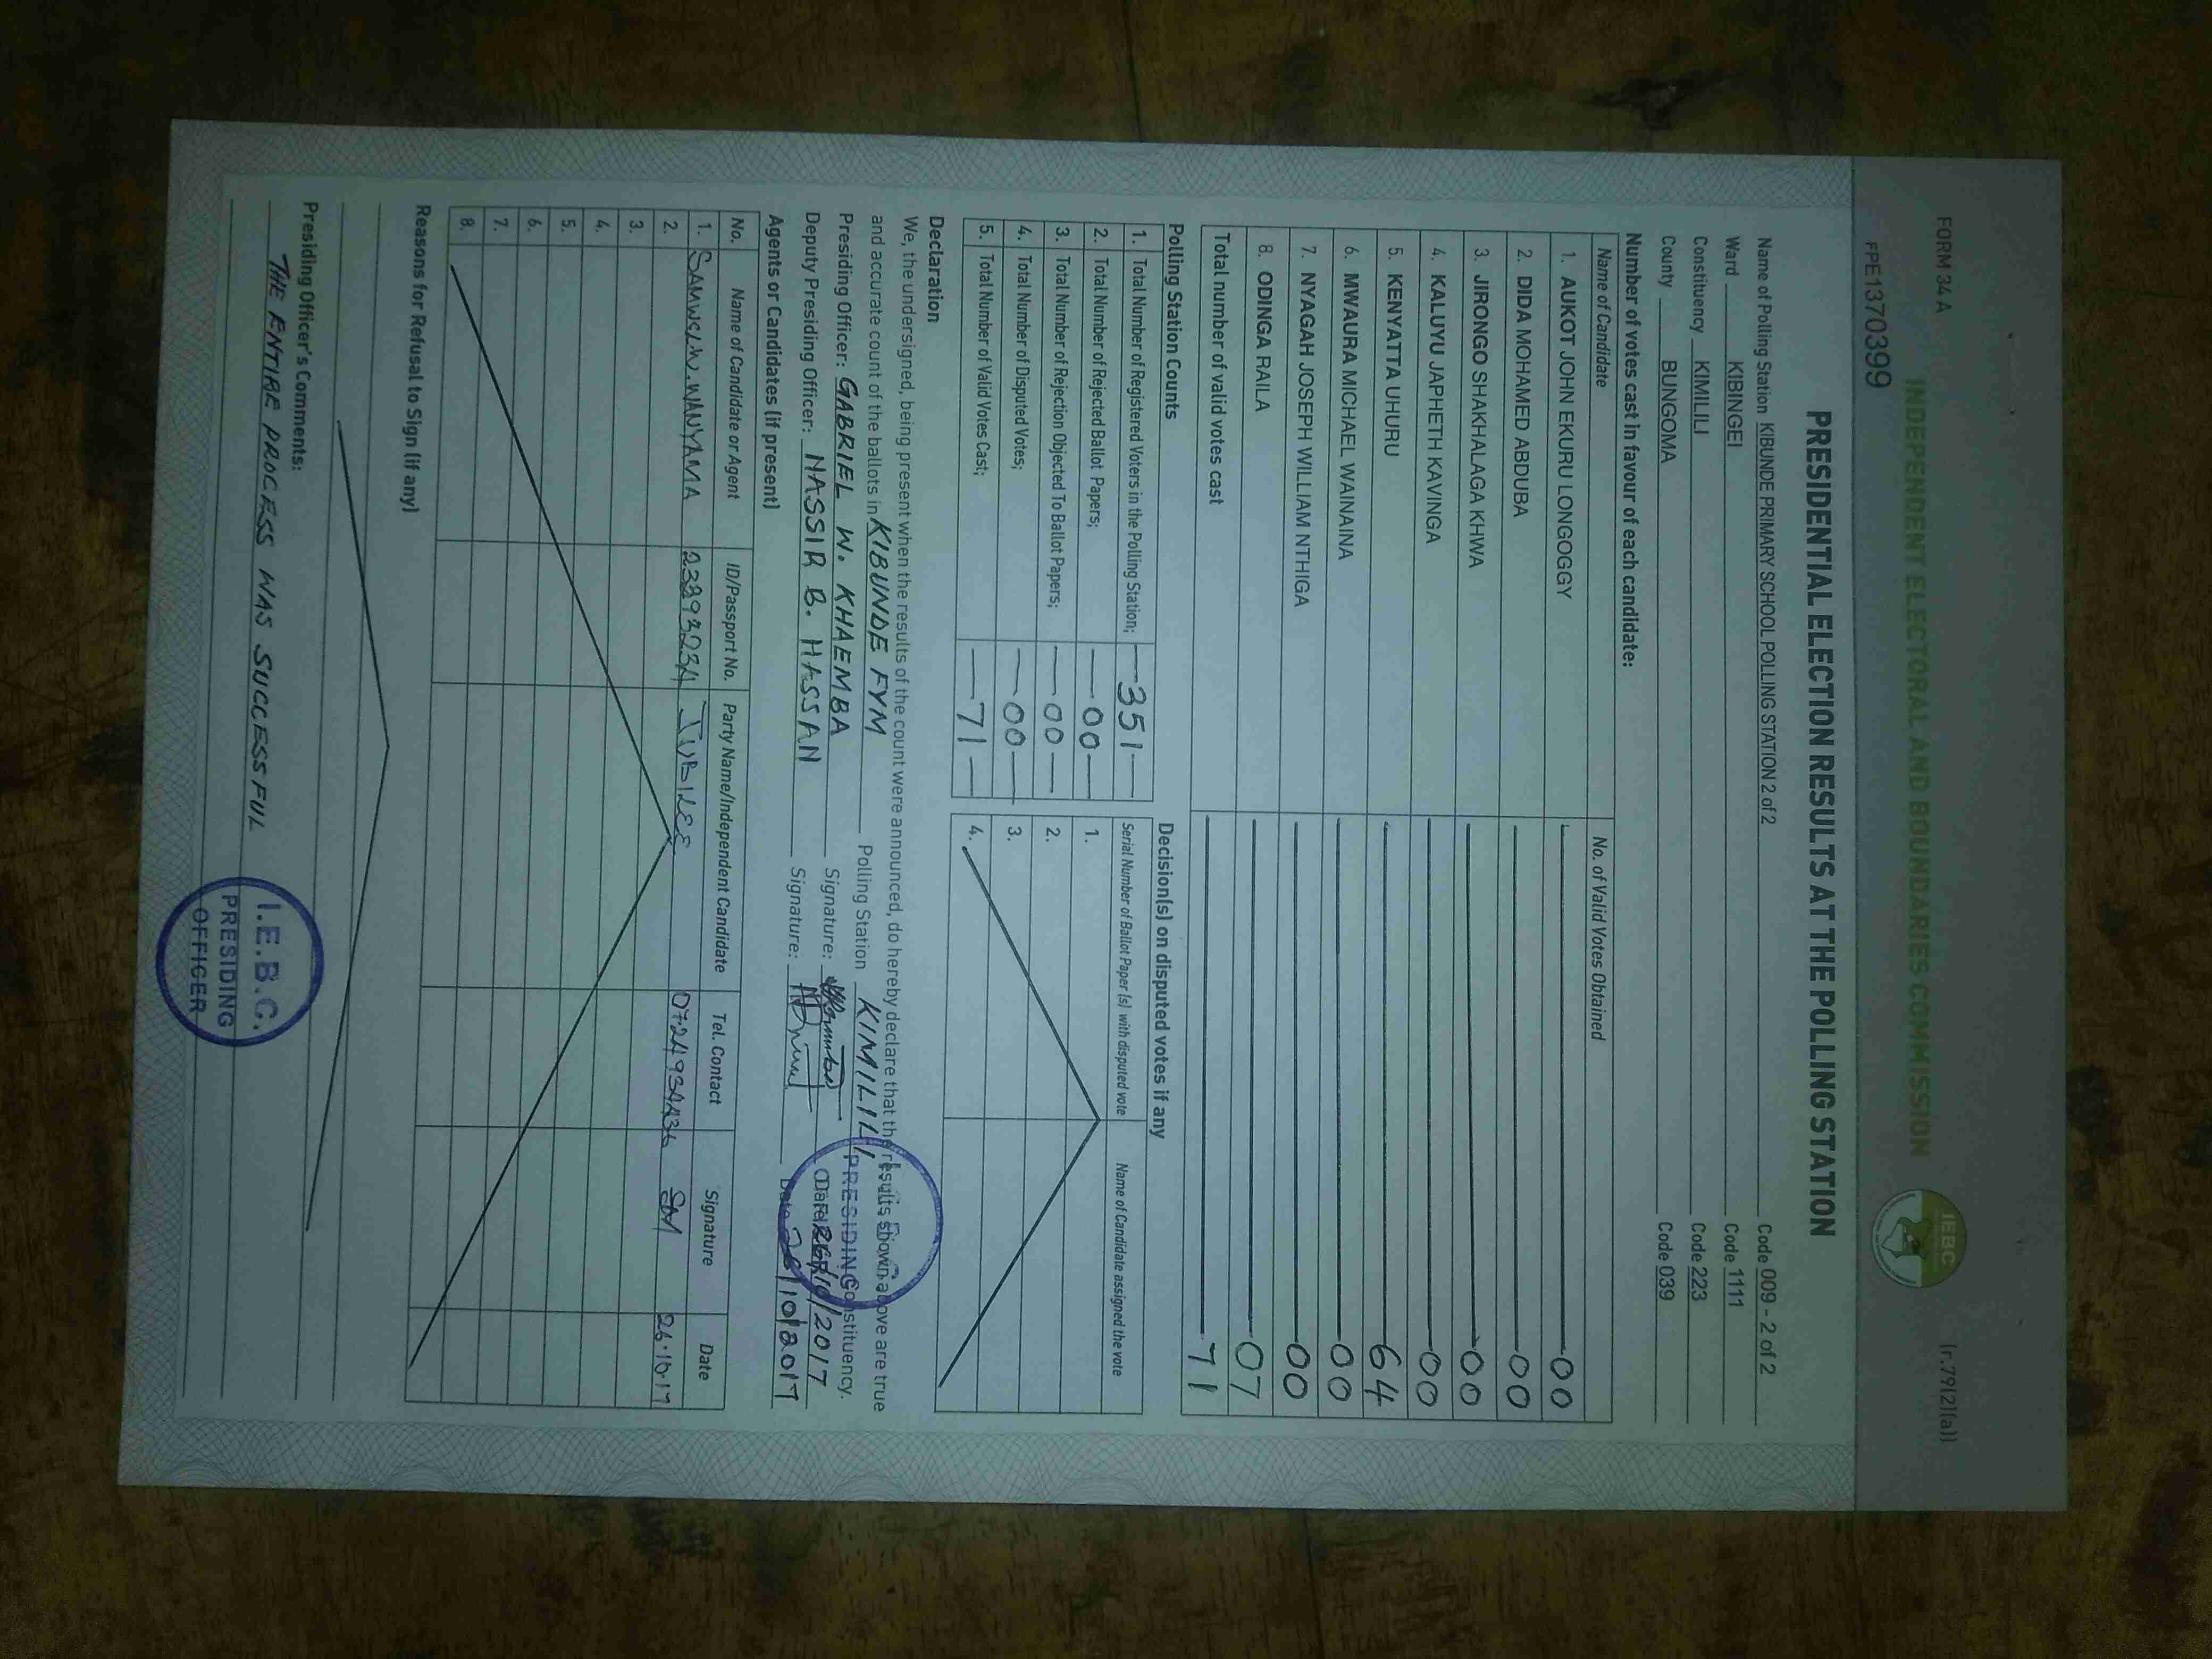 FORM 34 A
(r.79(2)(a))
INDEPENDENT ELECTORAL AND BOUNDARIES COMMISSION
IEBC
FPE1370399
PRESIDENTIAL ELECTION RESULTS AT THE POLLING STATION
Name of Polling Station KIBUNDE PRIMARY SCHOOL POLLING STATION 2 of 2 Code 009 - 2 of 2
Ward KIBINGEI Code 1111
Constituency KIMILILI Code 223
County BUNGOMA Code 039
Number of votes cast in favour of each candidate:
Name of Candidate No. of Valid Votes Obtained
1. AUKOT JOHN EKURU LONGOGGY 00
2. DIDA MOHAMED ABDUBA 00
3. JIRONGO SHAKHALAGA KHWA 00
4. KALUYU JAPHETH KAVINGA 00
5. KENYATTA UHURU 64
6. MWAURA MICHAEL WAINAINA 00
7. NYAGAH JOSEPH WILLIAM NTHIGA 00
8. ODINGA RAILA 07
Total number of valid votes cast 71
Polling Station Counts
1. Total Number of Registered Voters in the Polling Station; 351
2. Total Number of Rejected Ballot Papers; 00
3. Total Number of Rejection Objected To Ballot Papers; 00
4. Total Number of Disputed Votes; 00
5. Total Number of Valid Votes Cast; 71
Decision(s) on disputed votes if any
Serial Number of Ballot Paper (s) with disputed vote Name of Candidate assigned the vote
1.
2.
3.
4.
Declaration
We, the undersigned, being present when the results of the count were announced, do hereby declare that the results shown above are true
and accurate count of the ballots in KIBUNDE FYM Polling Station KIMILILI Constituency.
Presiding Officer: GABRIEL W. KHAEMBA Signature: Date 26/10/2017
Deputy Presiding Officer: NASSIR B. HASSAN Signature: Date 26/10/2017
PRESIDING
Agents or Candidates (if present)
No. Name of Candidate or Agent ID/Passport No. Party Name/Independent Candidate Tel. Contact Signature Date
1. SAMWEL W. WANYAMA JUBILEE SM 26.10.17
2.
3.
4.
5.
6.
7.
8.
Reasons for Refusal to Sign (if any)
Presiding Officer's Comments:
THE ENTIRE PROCESS WAS SUCCESSFUL
I.E.B.C.
PRESIDING
OFFICER